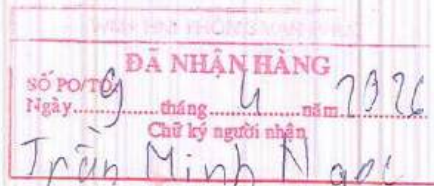 ĐÃ NHẬN HÀNG
SỐ PO/TO
Ngày 9 tháng 4 năm 2026
Chữ ký người nhận
Trần Minh Ngọc